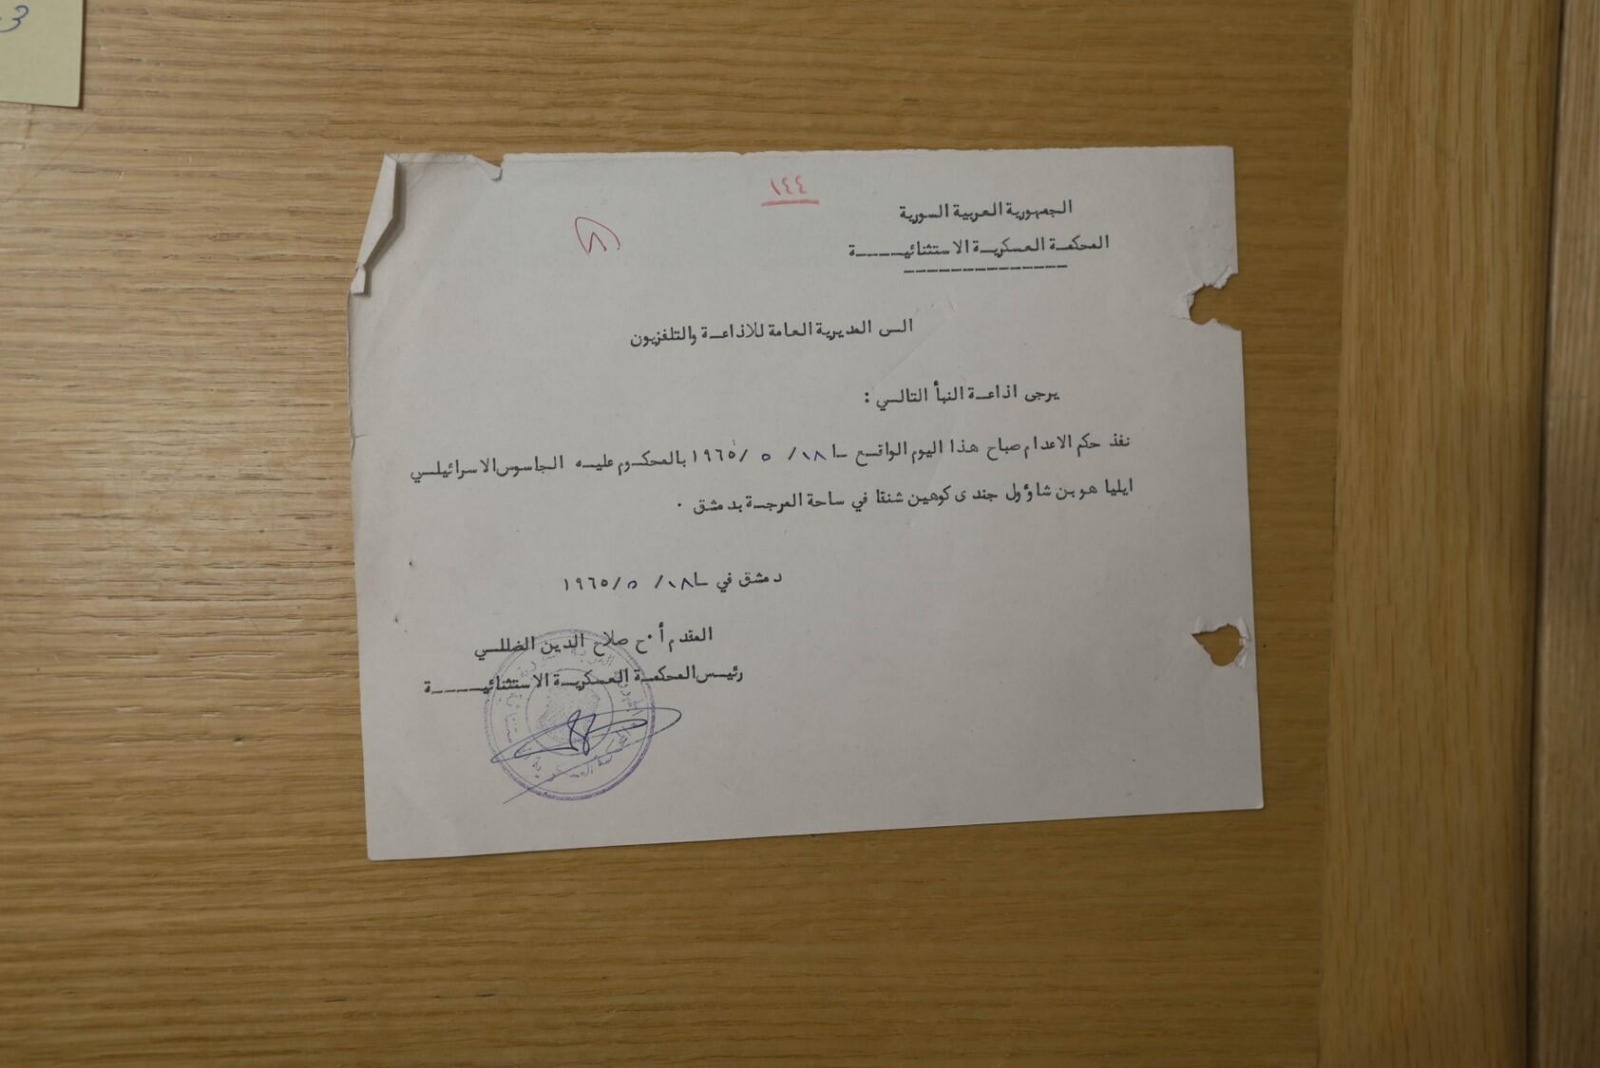 3
١٤٤
٨
الجمهورية العربية السورية
المحكمة العسكرية الاستثنائيــــة
الى المديرية العامة للاذاعة والتلفزيون
يرجى اذاعة النبأ التالي :
نفذ حكم الاعدام صباح هذا اليوم الواقع ١٨/ ٥ /١٩٦٥ بالمحكوم عليه الجاسوس الاسرائيلي
ايليا هو بن شاؤول جندى كوهين شنقا في ساحة المرجة بدمشق ٠
دمشق في ١٨/ ٥ /١٩٦٥
المقدم أ٠ح صلاح الدين الضللي
رئيس المحكمة العسكرية الاستثنائيــــة